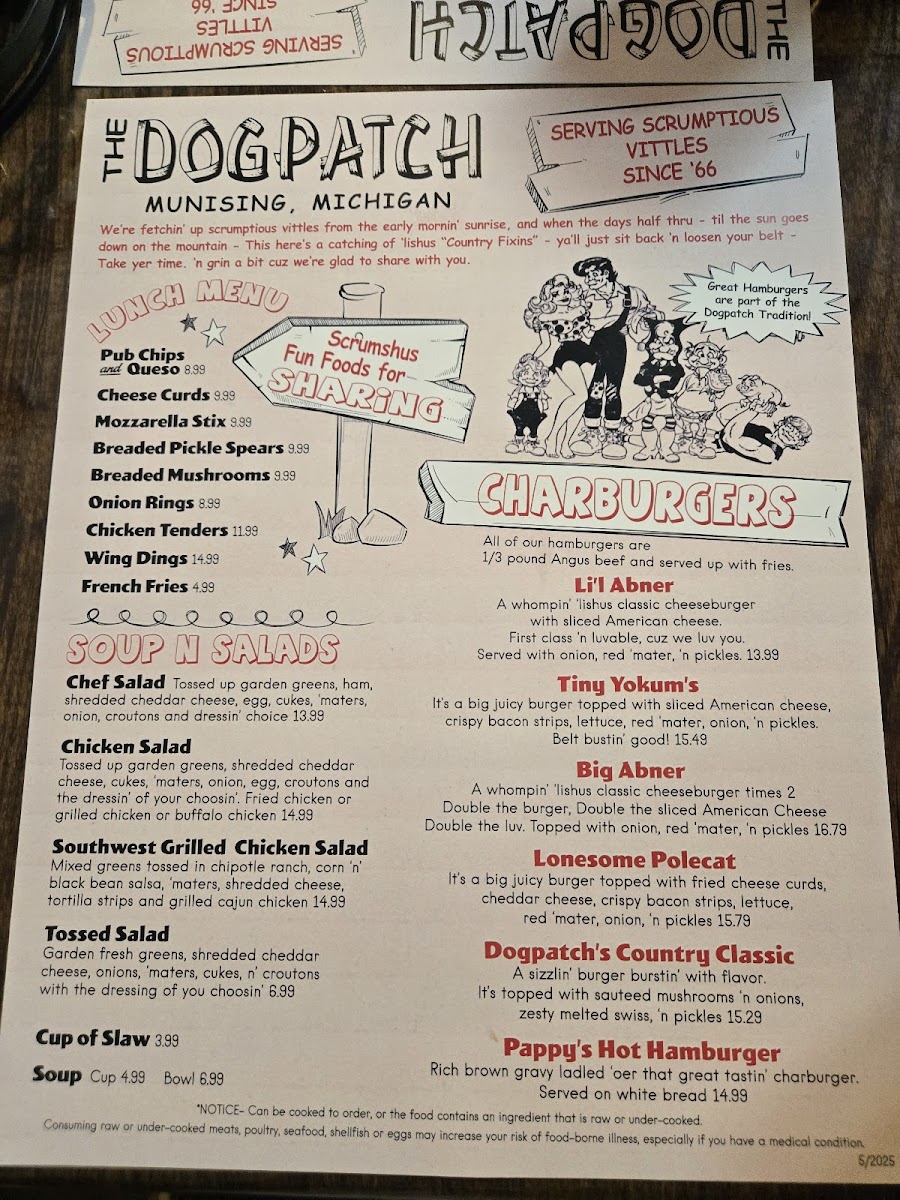 THE DOGPATCH
SERVING SCRUMPTIOUS
VITTLES
SINCE '66
THE DOGPATCH
MUNISING, MICHIGAN
SERVING SCRUMPTIOUS
VITTLES
SINCE '66
We're fetchin' up scrumptious vittles from the early mornin' sunrise, and when the days half thru - til the sun goes
down on the mountain - This here's a catching of 'lishus "Country Fixins" - ya'll just sit back 'n loosen your belt -
Take yer time. 'n grin a bit cuz we're glad to share with you.
LUNCH MENU
Scrumshus
Fun Foods for
SHARING
Pub Chips
and Queso 8.99
Cheese Curds 9.99
Mozzarella Stix 9.99
Breaded Pickle Spears 9.99
Breaded Mushrooms 9.99
Onion Rings 8.99
Chicken Tenders 11.99
Wing Dings 14.99
French Fries 4.99
SOUP N SALADS
Chef Salad Tossed up garden greens, ham,
shredded cheddar cheese, egg, cukes, 'maters,
onion, croutons and dressin' choice 13.99
Chicken Salad
Tossed up garden greens, shredded cheddar
cheese, cukes, 'maters, onion, egg, croutons and
the dressin' of your choosin'. Fried chicken or
grilled chicken or buffalo chicken 14.99
Southwest Grilled Chicken Salad
Mixed greens tossed in chipotle ranch, corn 'n'
black bean salsa, 'maters, shredded cheese,
tortilla strips and grilled cajun chicken 14.99
Tossed Salad
Garden fresh greens, shredded cheddar
cheese, onions, 'maters, cukes, n' croutons
with the dressing of you choosin' 6.99
Cup of Slaw 3.99
Soup Cup 4.99 Bowl 6.99
Great Hamburgers
are part of the
Dogpatch Tradition!
CHARBURGERS
All of our hamburgers are
1/3 pound Angus beef and served up with fries.
Li'l Abner
A whompin' 'lishus classic cheeseburger
with sliced American cheese.
First class 'n luvable, cuz we luv you.
Served with onion, red 'mater, 'n pickles. 13.99
Tiny Yokum's
It's a big juicy burger topped with sliced American cheese,
crispy bacon strips, lettuce, red 'mater, onion, 'n pickles.
Belt bustin' good! 15.49
Big Abner
A whompin' 'lishus classic cheeseburger times 2
Double the burger, Double the sliced American Cheese
Double the luv. Topped with onion, red 'mater, 'n pickles 16.79
Lonesome Polecat
It's a big juicy burger topped with fried cheese curds,
cheddar cheese, crispy bacon strips, lettuce,
red 'mater, onion, 'n pickles 15.79
Dogpatch's Country Classic
A sizzlin' burger burstin' with flavor.
It's topped with sauteed mushrooms 'n onions,
zesty melted swiss, 'n pickles 15.29
Pappy's Hot Hamburger
Rich brown gravy ladled 'oer that great tastin' charburger.
Served on white bread 14.99
*NOTICE- Can be cooked to order, or the food contains an ingredient that is raw or under-cooked.
Consuming raw or under-cooked meats, poultry, seafood, shellfish or eggs may increase your risk of food-borne illness, especially if you have a medical condition.
5/2025